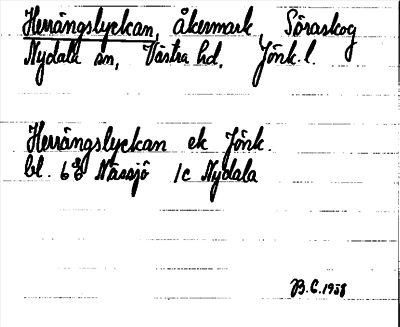 Herrängslyckan, åkermark, Söraskog
Nydala sn, Västra hd, Jönk. l.
Herrängslyckan ek Jönk.
bl. 68 Nässjö 1c Nydala
B.C. 1958